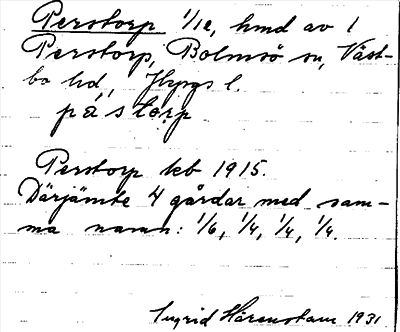 Perstorp 1/12, hmd av 1
Perstorp, Bolmsö sn, Väst-
bo hd, Jkpgs l.
pástorp
Perstorp kb 1915.
Därjämte 4 gårdar med sam-
ma namn: 1/6, 1/4, 1/4, 1/4.
Ingrid Härenstam 1931